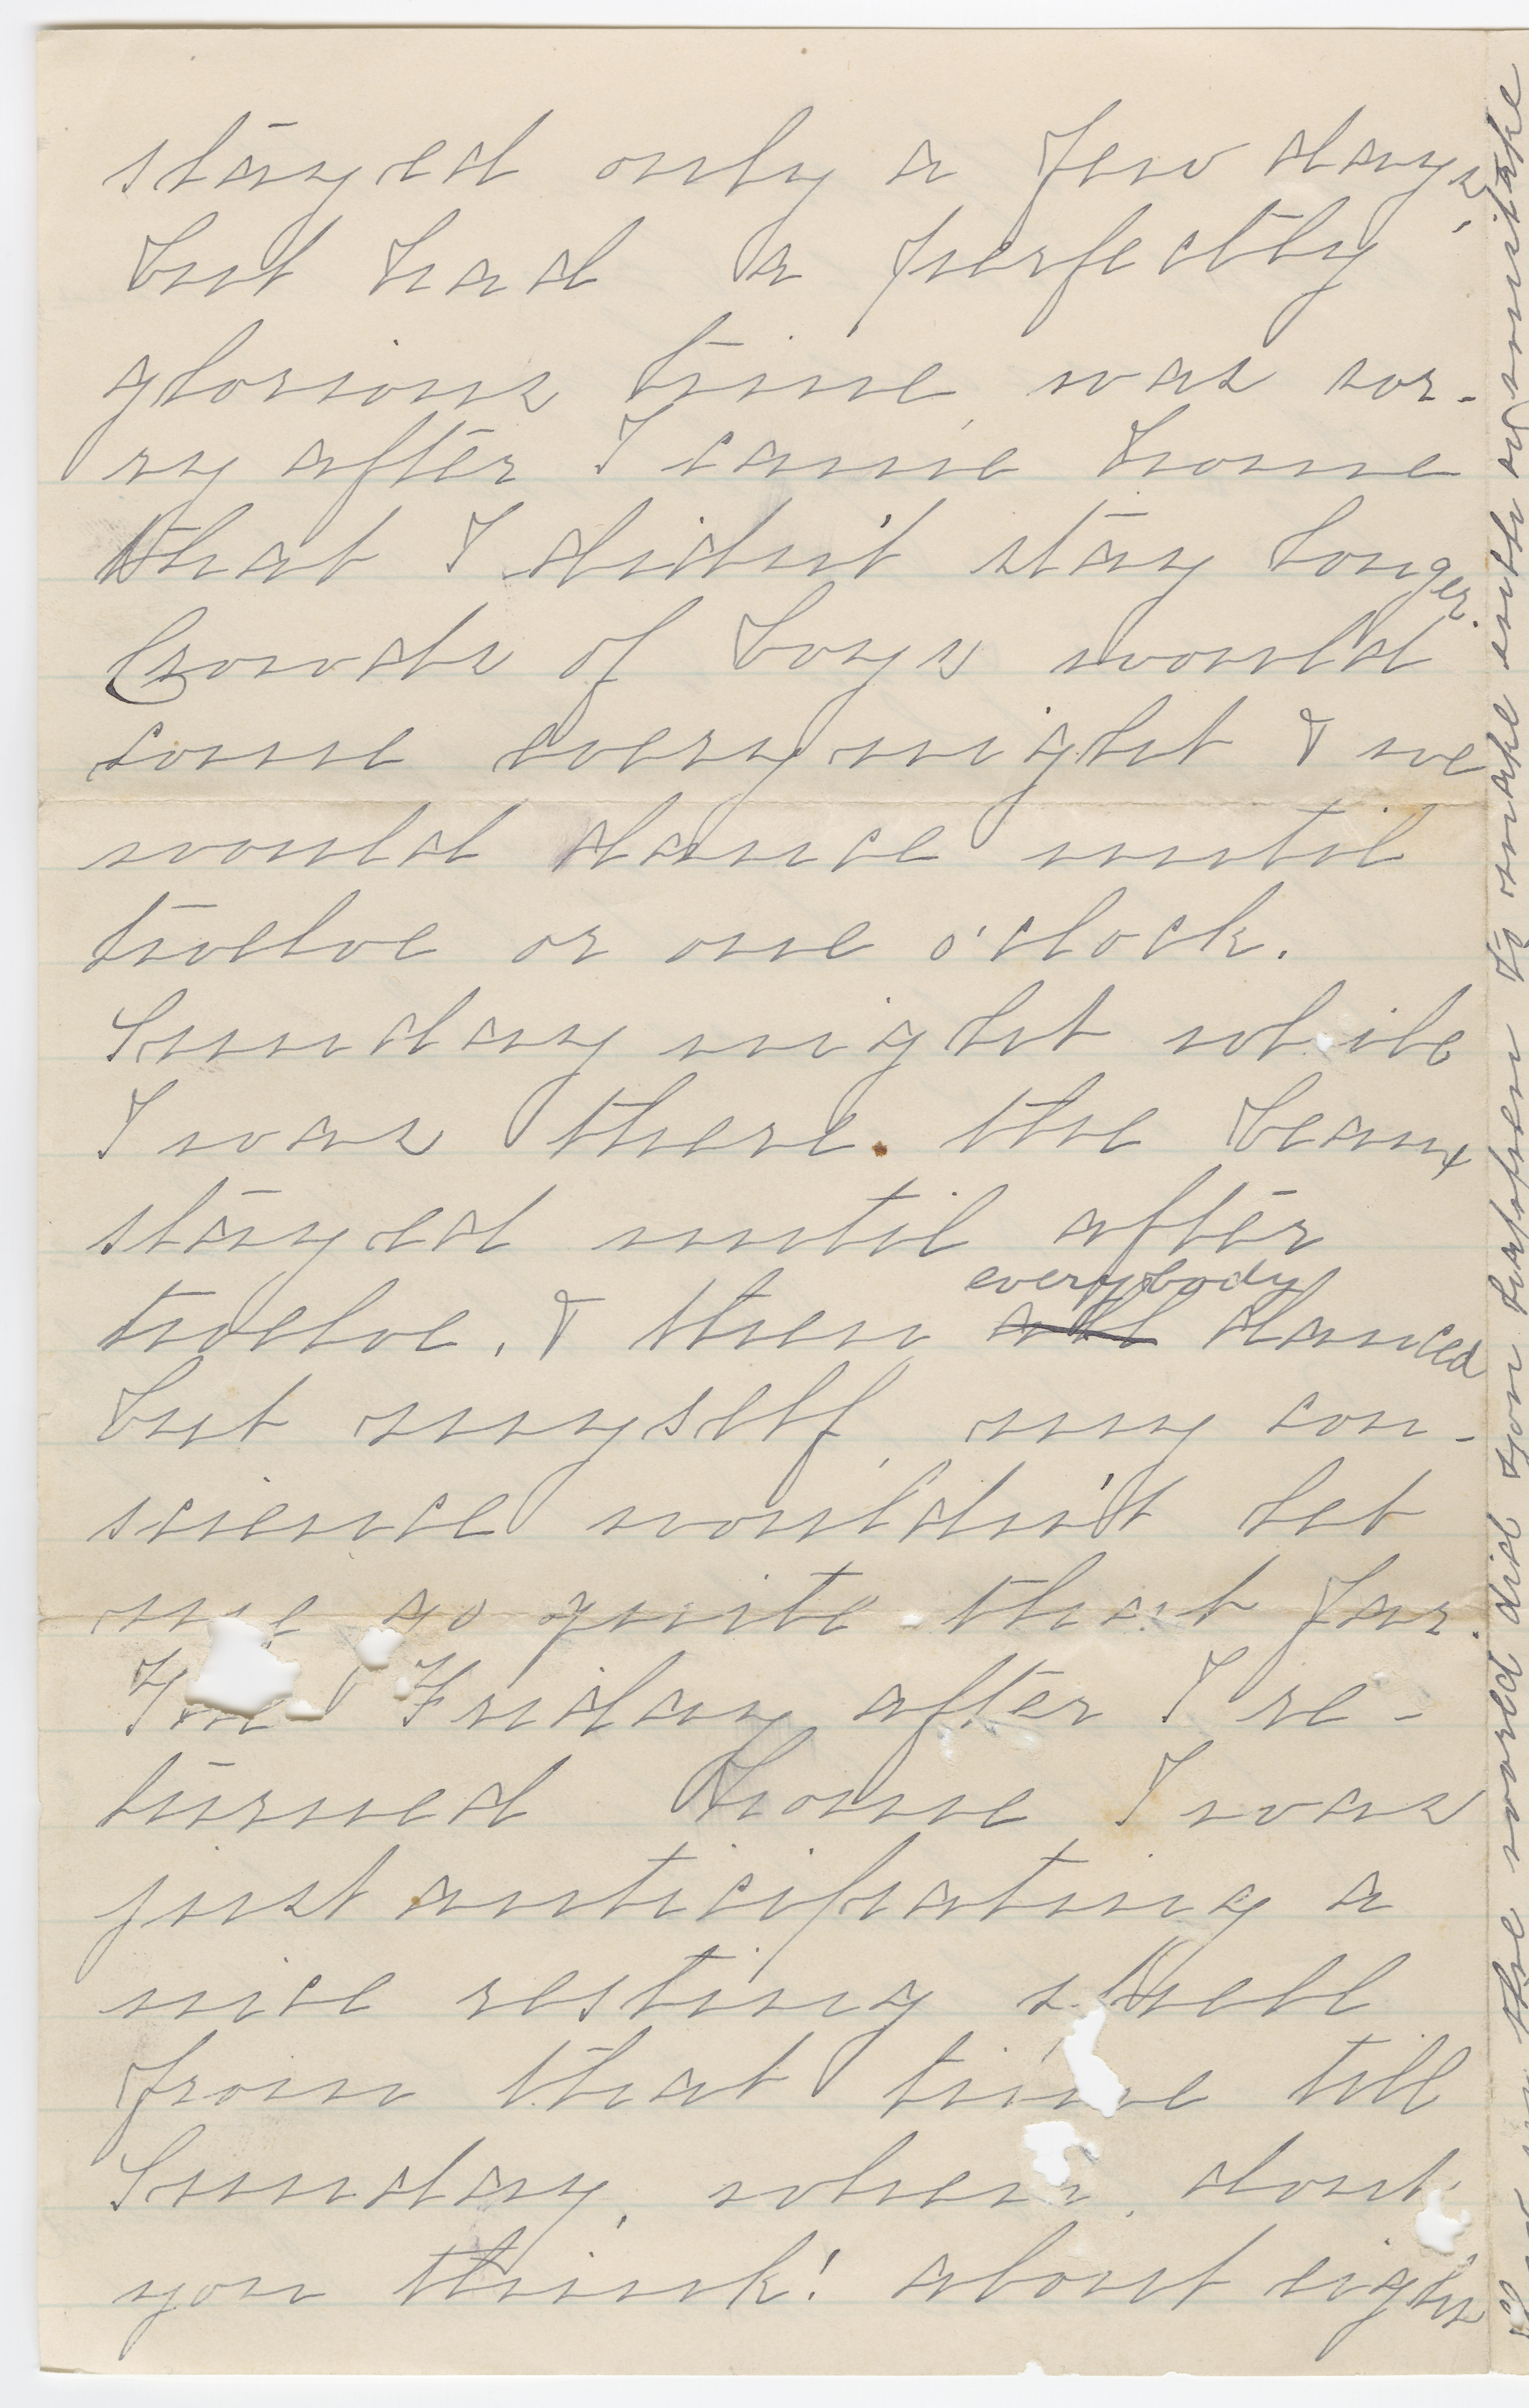 stayed only a few days,
but had a perfectly
glorious time, was sor-
ry after I came home
that I didn't stay longer.
Crowds of boys would
come every night & we
would dance until
twelve or one o'clock.
Sunday night while
I was there. the beaux
stayed until after
everybody
twelve, & then all danced
but myself, my con-
science would'dn't let
me go quite that far.
The Friday after I re-
turned home I was
just anticipating a
nice resting spell
from that time till
Sunday, when, dont
you think! about eight
the world did you happen to make such a mistake